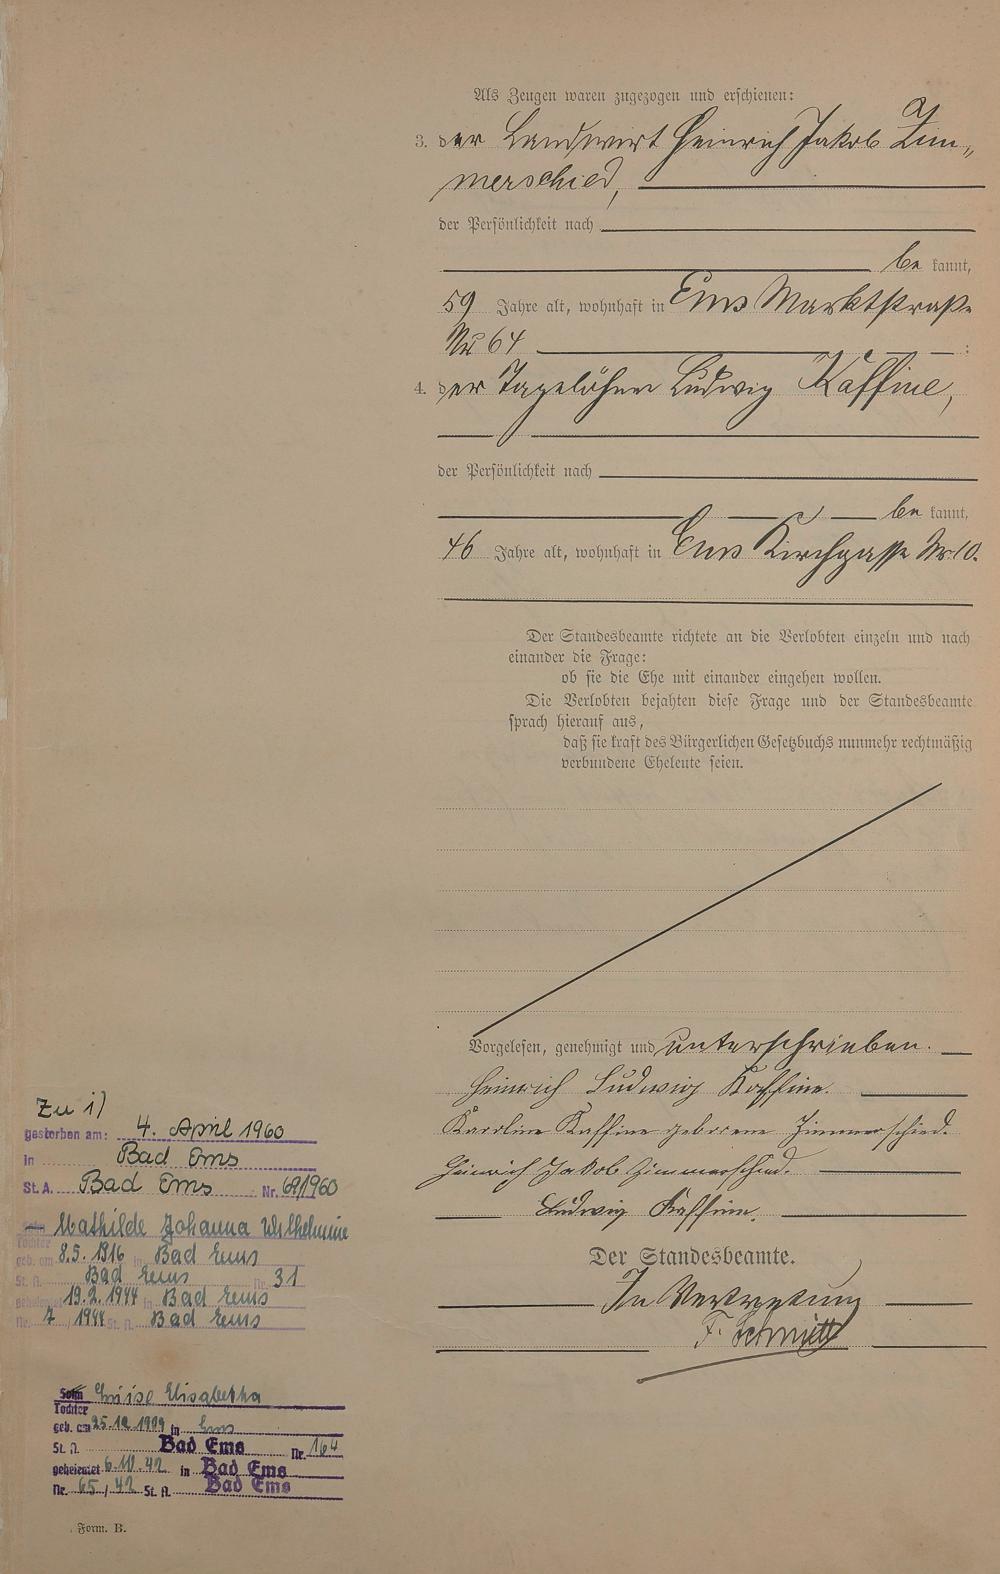 Als Zeugen waren zugezogen und erschienen:
3. der Landwirt Heinrich Jakob Zim„
merschied,
der Persönlichkeit nach
be kannt,
59 Jahre alt, wohnhaft in Ems Marktstraße
Nr 64 :
4. der Tagelöhner Ludwig Kaffine,
der Persönlichkeit nach
be kannt,
46 Jahre alt, wohnhaft in Ems Kirchgasse Nr. 10.
Der Standesbeamte richtete an die Verlobten einzeln und nach
einander die Frage:
ob sie die Ehe mit einander eingehen wollen.
Die Verlobten bejahten diese Frage und der Standesbeamte
sprach hierauf aus,
daß sie kraft des Bürgerlichen Gesetzbuchs nunmehr rechtmäßig
verbundene Eheleute seien.
Vorgelesen, genehmigt und unterschrieben.
Heinrich Ludwig Kaffine.
Karoline Kaffine geborene Zimmerschied.
Heinrich Jakob Zimmerschied.
Ludwig Kaffine.
Der Standesbeamte.
In Vertretung
F. Schmitt
Zu 1)
gestorben am: 4. April 1960
in Bad Ems
St. A. Bad Ems Nr. 69/1960
Sohn Mathilde Johanna Wilhelmine
Tochter
geb. am 8.5.1916 in Bad Ems
St. A. Bad Ems Nr. 31
geheiratet 19.2.1944 in Bad Ems
Nr. 7 / 1944 St. A. Bad Ems
Sohn Luise Elisabetha
Tochter
geb. am 25.12.1909 in Ems
St. A. Bad Ems Nr. 164
geheiratet 6.10.42 in Bad Ems
Nr. 65 / 42 St. A. Bad Ems
Form. B.